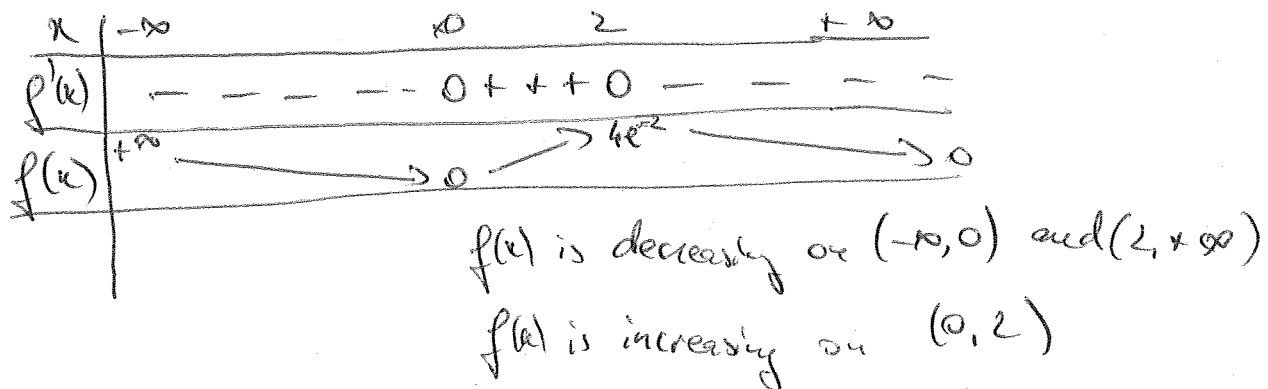 x -∞ 0 2 +∞
f'(x) - - - - - 0 + + + 0 - - - -
f(x) +∞ → 0 → 4e⁻² → 0
f(x) is decreasing on (-∞,0) and (2,+∞)
f(x) is increasing on (0,2)